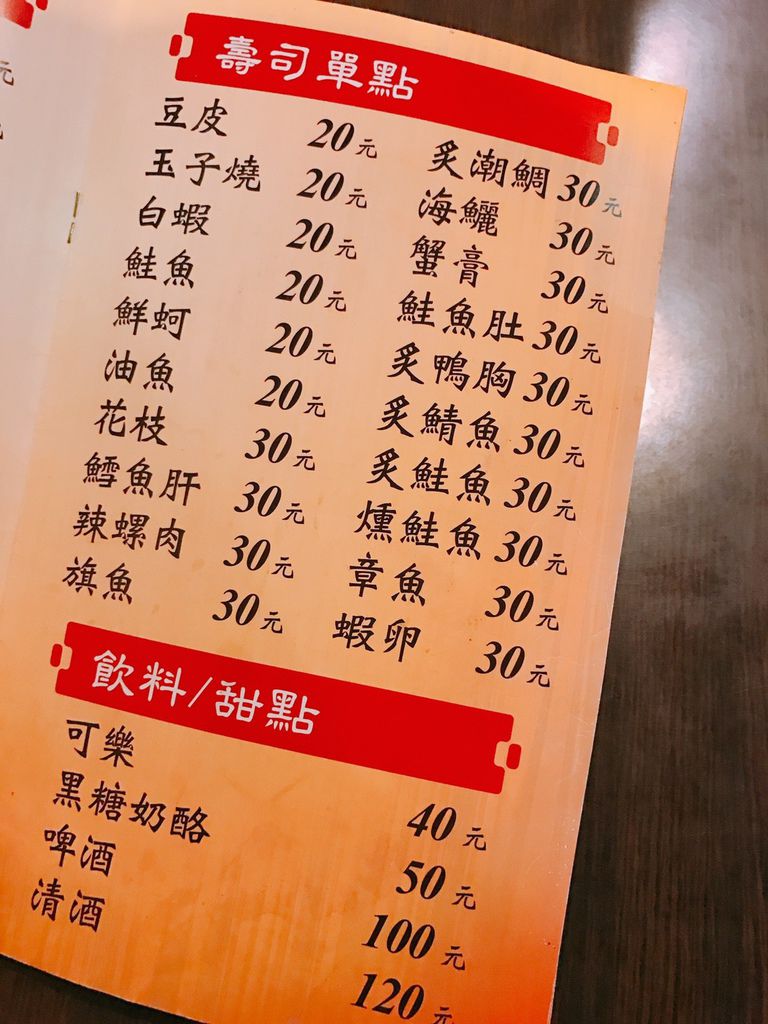 壽司單點
豆皮 20元
玉子燒 20元
白蝦 20元
鮭魚 20元
鮮蚵 20元
油魚 20元
花枝 30元
鱈魚肝 30元
辣螺肉 30元
旗魚 30元
炙潮鯛 30元
海鱺 30元
蟹膏 30元
鮭魚肚 30元
炙鴨胸 30元
炙鯖魚 30元
炙鮭魚 30元
燻鮭魚 30元
章魚 30元
蝦卵 30元
飲料/甜點
可樂 40元
黑糖奶酪 50元
啤酒 100元
清酒 120元
元